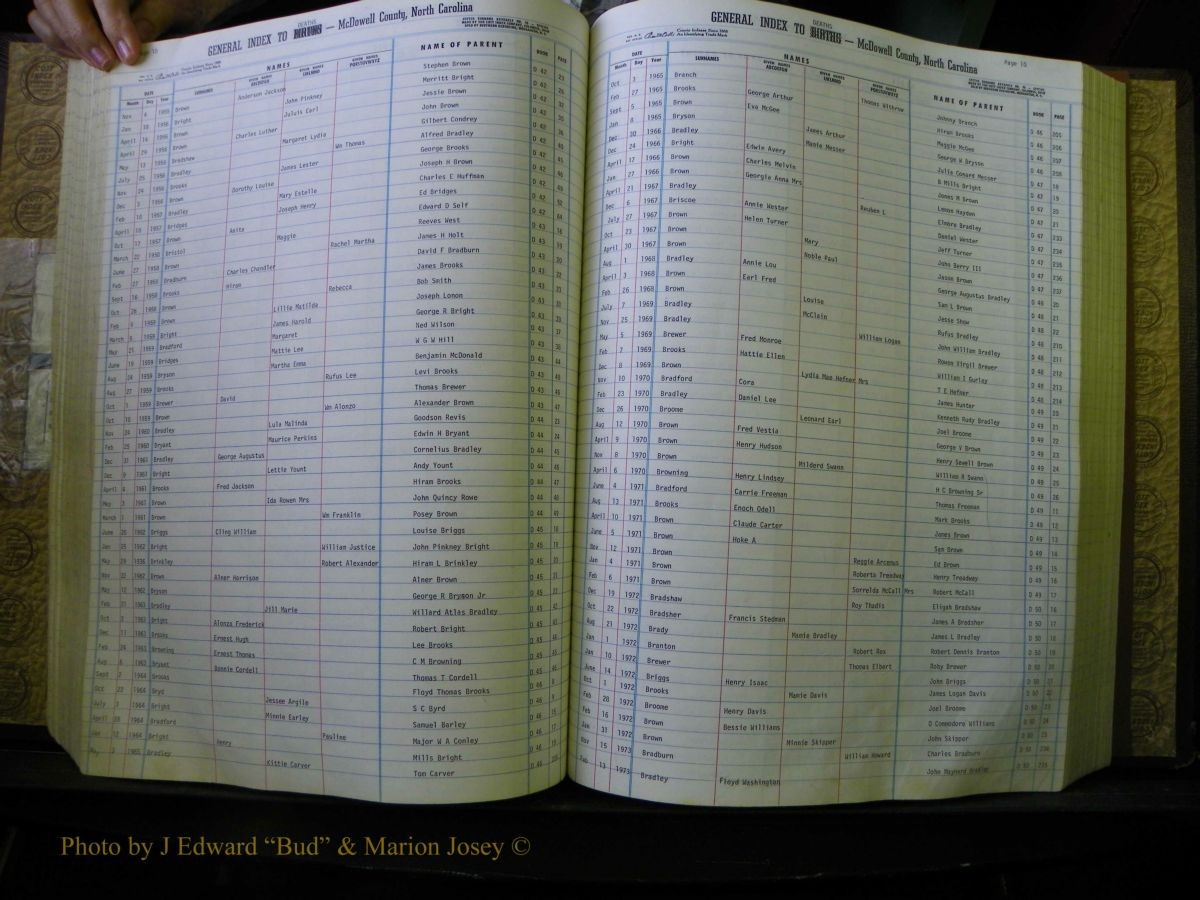 Page 10
DEATHS
GENERAL INDEX TO BIRTHS — McDowell County, North Carolina
DATE NAMES NAME OF PARENT BOOK PAGE
Month Day Year SURNAMES GIVEN NAMES ABCDEFGH GIVEN NAMES IJKLMNO GIVEN NAMES PQRSTUVWXYZ
Nov 4 1955 Brown Anderson Jackson Stephen Brown D 42
Jan 10 1956 Bright John Pinkney Merritt Bright D 42
April 14 1956 Brown Juluis Carl Jessie Brown D 42
April 29 1956 Brown Charles Luther John Brown D 42
May 13 1956 Bradshaw Margaret Lydia Gilbert Condrey D 42
July 25 1956 Bradley Wm Thomas Alfred Bradley D 42
Nov 24 1956 Brooks James Lester George Brooks D 42
Dec 3 1956 Brown Dorothy Louise Joseph H Brown D 42
Feb 10 1957 Bradley Mary Estelle Charles E Huffman D 42
April 18 1957 Bridges Joseph Henry Ed Bridges D 42
Oct 17 1957 Brown Anita Edward D Self D 43
March 22 1958 Bristol Maggie Reeves West D 43
June 27 1958 Brown Rachel Martha James H Holt D 43
Feb 27 1958 Bradburn Charles Chandler David F Bradburn D 43
Sept 16 1958 Brooks Hiram James Brooks D 43
Oct 26 1958 Brown Rebecca Bob Smith D 43
Feb 6 1959 Brown Lillie Matilda Joseph Lonon D 43
March 8 1959 Bright James Harold George R Bright D 43
May 21 1959 Bradford Margaret Ned Wilson D 43
June 19 1959 Bridges Mattie Lee W G W Hill D 43
Aug 24 1959 Bryson Martha Emma Benjamin McDonald D 43
Aug 27 1959 Brooks Rufus Lee Levi Brooks D 43
Oct 1 1959 Brewer David Thomas Brewer D 43
Oct 10 1959 Brown Wm Alonzo Alexander Brown D 43
Nov 24 1960 Bradley Lula Malinda Goodson Revis D 44
Feb 25 1960 Bryant Maurice Perkins Edwin H Bryant D 44
Dec 31 1961 Bradley George Augustus Cornelius Bradley D 44
Dec 9 1961 Bright Lettie Yount Andy Yount D 44
April 4 1961 Brooks Fred Jackson Hiram Brooks D 44
May 3 1961 Brown Ida Rowen Mrs John Quincy Rowe D 44
March 1 1961 Brown Wm Franklin Posey Brown D 44
June 26 1962 Briggs Cling William Louise Briggs D 45
Jan 25 1962 Bright William Justice John Pinkney Bright D 45
May 29 1936 Brinkley Robert Alexander Hiram L Brinkley D 45
Nov 22 1962 Brown Alner Horrison Alner Brown D 45
May 12 1962 Bryson George R Bryson Jr D 45
Feb 21 1963 Bradley Jill Marie Willard Atlas Bradley D 45
Oct 3 1963 Bright Alonza Frederick Robert Bright D 45
Dec 11 1963 Brooks Ernest Hugh Lee Brooks D 45
Feb 24 1963 Browning Ernest Thomas C M Browning D 45
Aug 6 1963 Bryant Donnie Cordell Thomas T Cordell D 45
Sept 2 1964 Brooks Floyd Thomas Brooks D 46
Oct 22 1964 Bryd Jessee Argile S C Byrd D 46
July 3 1964 Bright Minnie Earley Samuel Barley D 46
April 30 1964 Bradford Pauline Major W A Conley D 46
Jan 12 1964 Bright Henry Mills Bright D 46
May 2 1965 Bradley Kittie Carver Tom Carver D 46
DEATHS
GENERAL INDEX TO BIRTHS — McDowell County, North Carolina Page 10
DATE NAMES NAME OF PARENT BOOK PAGE
Month Day Year SURNAMES GIVEN NAMES ABCDEFGH GIVEN NAMES IJKLMNO GIVEN NAMES PQRSTUVWXYZ
Oct 3 1965 Branch Thomas Withrow Johnny Branch D 46 205
Feb 27 1965 Brooks George Arthur Hiram Brooks D 46 206
Sept 5 1965 Brown Eva McGee Maggie McGee D 46 207
Jan 8 1965 Bryson James Arthur George W Bryson D 46 208
Dec 30 1966 Bradley Mamie Messer Julie Conard Messer D 47 18
Dec 24 1966 Bright Edwin Avery B Mills Bright D 47 19
April 17 1966 Brown Charles Melvin Jones M Brown D 47 20
Jan 27 1966 Brown Georgie Anna Mrs Lenon Hayden D 47 21
April 21 1967 Bradley Reuben L Elmore Bradley D 47 233
Dec 6 1967 Briscoe Annie Wester Daniel Wester D 47 234
July 27 1967 Brown Helen Turner Jeff Turner D 47 235
Oct 23 1967 Brown Mary John Berry III D 47 236
April 30 1967 Brown Noble Paul Jason Brown D 47 237
Aug 1 1968 Bradley Annie Lou George Augustus Bradley D 48 20
April 3 1968 Brown Earl Fred San L Brown D 48 21
Feb 26 1968 Brown Louise Jesse Shaw D 48 22
July 7 1969 Bradley McClain Rufus Bradley D 48 210
Nov 25 1969 Bradley William Logan John William Bradley D 48 211
May 5 1969 Brewer Fred Monroe Rowen Virgil Brewer D 48 212
Feb 7 1969 Brooks Hattie Ellen William I Gurley D 48 213
Dec 8 1969 Brown Lydia Mae Hefner Mrs T E Hefner D 48 214
Nov 10 1970 Bradford Cora James Hunter D 49 20
Feb 23 1970 Bradley Daniel Lee Kenneth Rudy Bradley D 49 21
Dec 26 1970 Broome Leonard Earl Joel Broome D 49 22
Aug 12 1970 Brown Fred Vestia George V Brown D 49 23
April 9 1970 Brown Henry Hudson Henry Sewell Brown D 49 24
Nov 8 1970 Brown Milderd Swann William R Swann D 49 25
April 6 1970 Browning Henry Lindsey H C Browning Sr D 49 26
June 4 1971 Bradford Carrie Freeman Thomas Freeman D 49 11
Aug 13 1971 Brooks Enoch Odell Mark Brooks D 49 12
April 10 1971 Brown Claude Carter James Brown D 49 13
June 5 1971 Brown Hoke A Sgn Brown D 49 14
Nov 12 1971 Brown Reggie Arcemus Ed Brown D 49 15
Jan 4 1971 Brown Roberta Treadway Henry Treadway D 49 16
Feb 6 1971 Brown Sorrelda McCall Mrs Robert McCall D 49 17
Dec 19 1972 Bradshaw Roy Thadis Elijah Bradshaw D 50 16
Oct 22 1972 Bradsher Francis Stedman James A Bradsher D 50 17
Aug 21 1972 Brady Mamie Bradley James L Bradley D 50 18
Jan 1 1972 Branton Robert Rex Robert Dennis Branton D 50 19
Jan 10 1972 Brewer Thomas Elbert Roby Brewer D 50 20
June 14 1972 Briggs Henry Isaac John Briggs D 50 21
Oct 1 1972 Brooks Mamie Davis James Logan Davis D 50 22
Feb 28 1972 Broome Henry Davis Joel Broome D 50 23
Feb 16 1972 Brown Bessie Williams D Commodore Williams D 50 24
Jan 31 1972 Brown Minnie Skipper John Skipper D 50 25
Nov 15 1973 Bradburn William Howard Charles Bradburn D 50 234
Feb 13 1973 Bradley Floyd Washington John Maynard Bradley D 50 235
Photo by J Edward “Bud” & Marion Josey ©